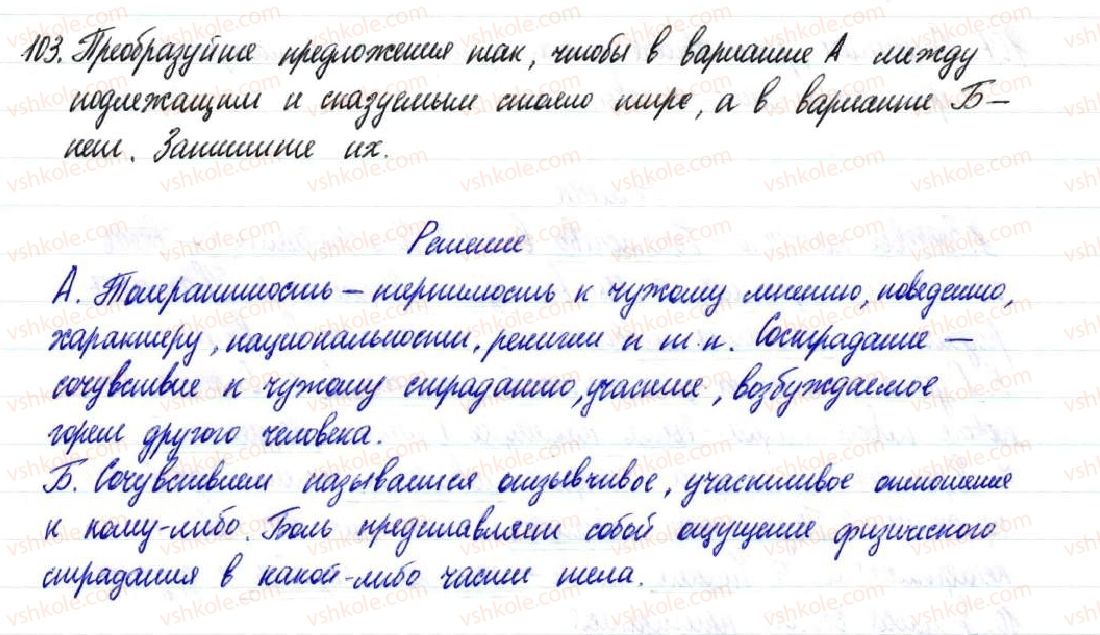 103. Преобразуйте предложения так, чтобы в варианте А между
подлежащим и сказуемым стояло тире, а в варианте Б –
нет. Запишите их.
Решение
А. Толерантность – терпимость к чужому мнению, поведению,
характеру, национальности, религии и т.п. Сострадание –
сочувствие к чужому страданию, участие, возбуждаемое
горем другого человека.
Б. Сочувствием называется отзывчивое, участливое отношение
к кому-либо. Боль представляет собой ощущение физического
страдания в какой-либо части тела.